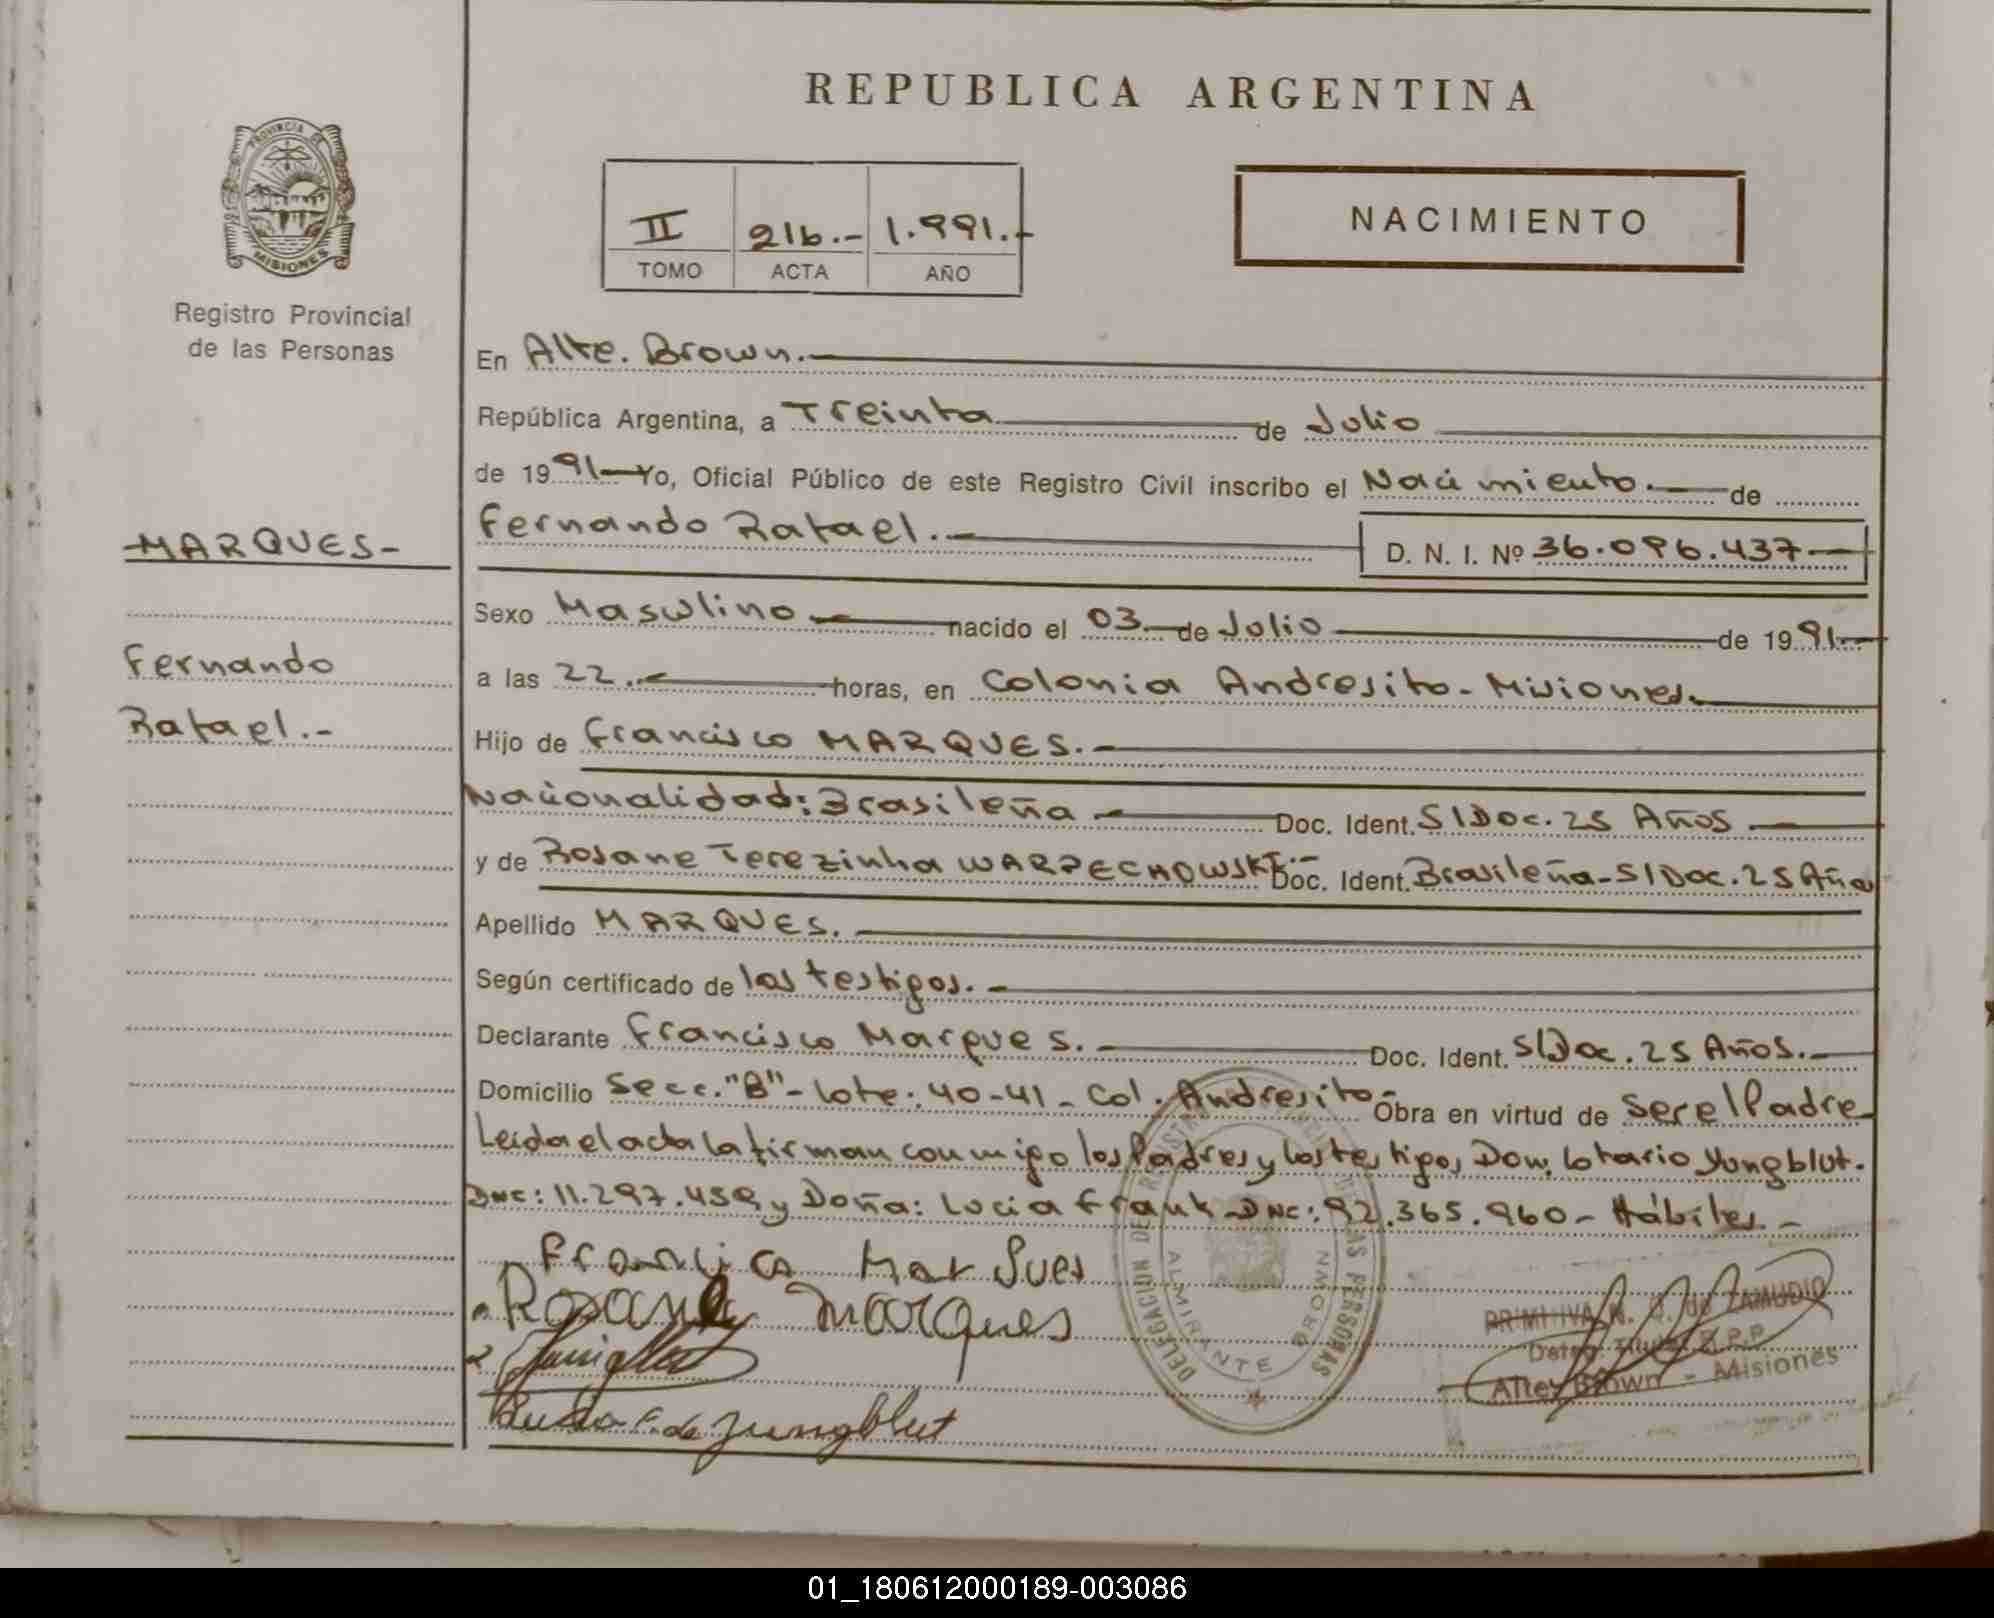 REPUBLICA ARGENTINA
PROVINCIA DE
MISIONES
Registro Provincial
de las Personas
II 216.- 1.991.-
TOMO ACTA AÑO
NACIMIENTO
En Alte. Brown.-
República Argentina, a Treinta de Julio
de 1991 Yo, Oficial Público de este Registro Civil inscribo el Nacimiento.- de
Fernando Rafael.- D. N. I. Nº 36.096.437-
-MARQUES-
Fernando
Rafael.-
Sexo Masculino nacido el 03 de Julio de 1991.-
a las 22.- horas, en Colonia Andresito - Misiones.
Hijo de Francisco MARQUES.-
Nacionalidad: Brasileña Doc. Ident. S/Doc. 25 Años
y de Rosane Terezinha WARPECHOWSKI.- Doc. Ident. Brasileña - S/Doc. 25 Años
Apellido MARQUES.
Según certificado de los testigos.-
Declarante Francisco Marques. Doc. Ident. S/Doc. 25 Años.-
Domicilio Secc. "B" - Lote: 40-41 - Col. Andresito Obra en virtud de Ser el Padre
Leída el acta la firman conmigo los Padres y los testigos, Don, Lotario Yungblut.
DNC: 11.297.459 y Doña: Lucia Frank DNC: 92.365.960 - Hábiles.-
Francisco Marques
Rosane Marques
Lucia F. de Jungblut
DELEGACION DE REGISTRO PROVINCIAL DE LAS PERSONAS
ALMIRANTE BROWN
PRIMITIVA N. de ZAMUDIO
R.P.P
Alte. Brown - Misiones
01_180612000189-003086